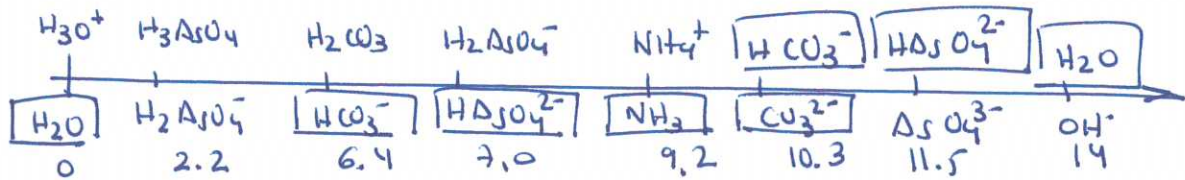 H3O+ H3AsO4 H2CO3 H2AsO4- NH4+ HCO3- HAsO4^2- H2O
H2O H2AsO4- HCO3- HAsO4^2- NH3 CO3^2- AsO4^3- OH-
0 2.2 6.4 7,0 9,2 10.3 11.5 14